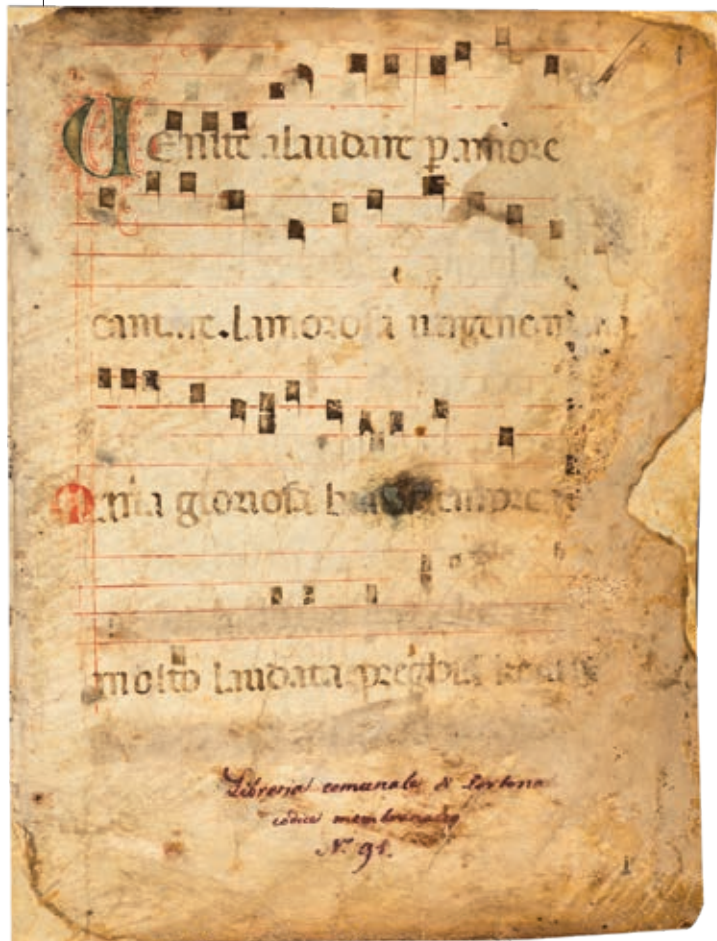 Uenite alaudare p amore
cantare.lamorosa uergene maria
Maria gloriosa biata sempre
molto laudata.preghia
Libreria comunale di Cortona
codice membranaceo
N.º 91.